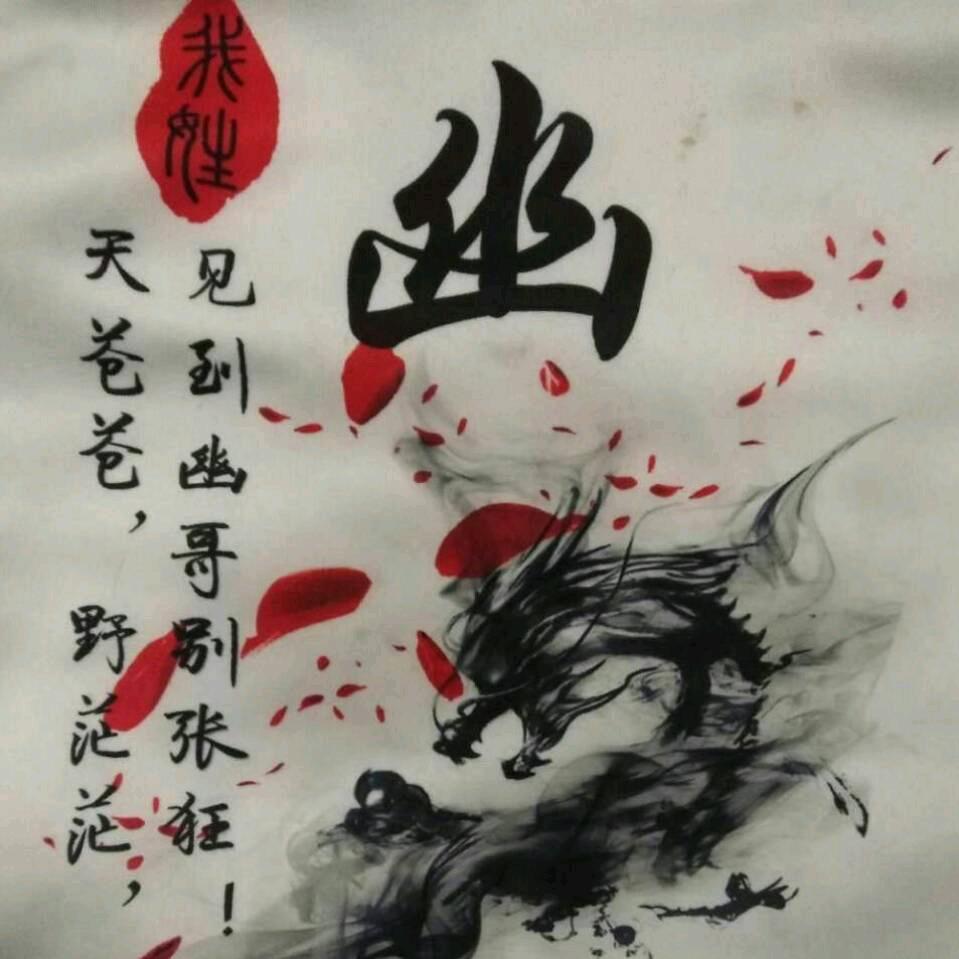 我姓
幽
天苍苍，野茫茫，
见到幽哥别张狂！